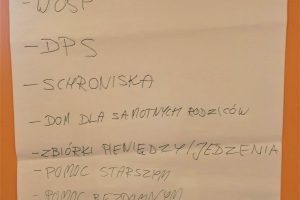 - WOŚP
- DPS
- SCHRONISKA
- DOM DLA SAMOTNYCH RODZICÓW
- ZBIÓRKI PIENIĘDZY/JEDZENIA
- POMOC STARSZYM
- POMOC BEZDOMNYM